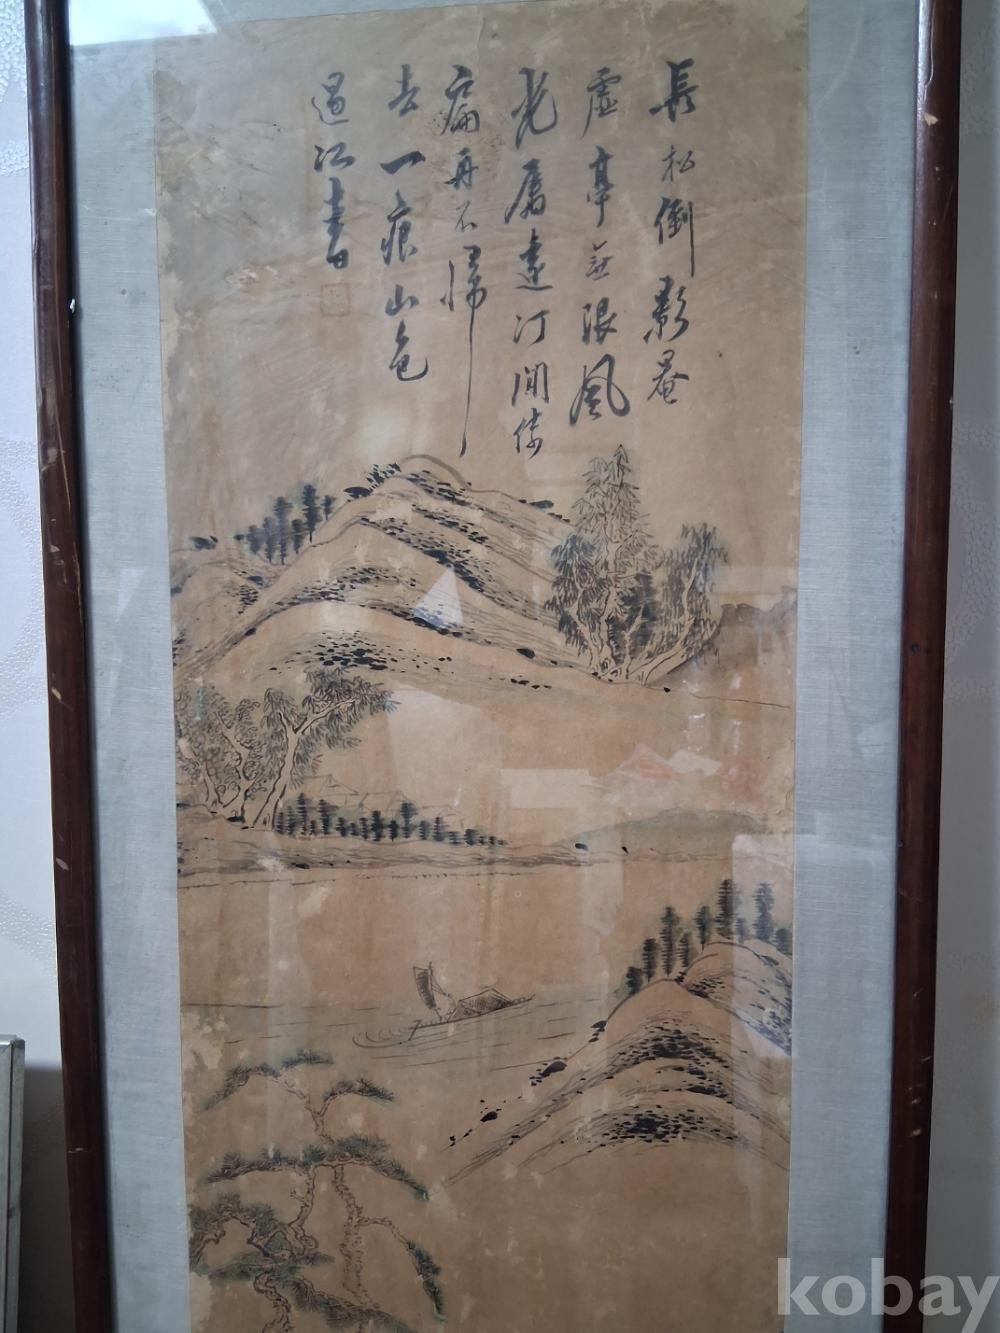 長松倒影菴
虛亭無限風
光屬遠汀閒倚
再不歸
去一痕山色
過江書
kobay